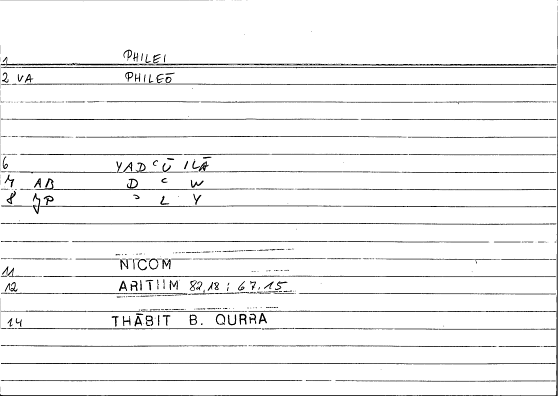 1 PHILEI
2 VA PHILEŌ
6 YADʿŪ ILĀ
7 AB D ʿ W
8 JP ʾ L Y
11 NICOM
12 ARITIIM 82,18 ; 67.15
14 THĀBIT B. QURRA